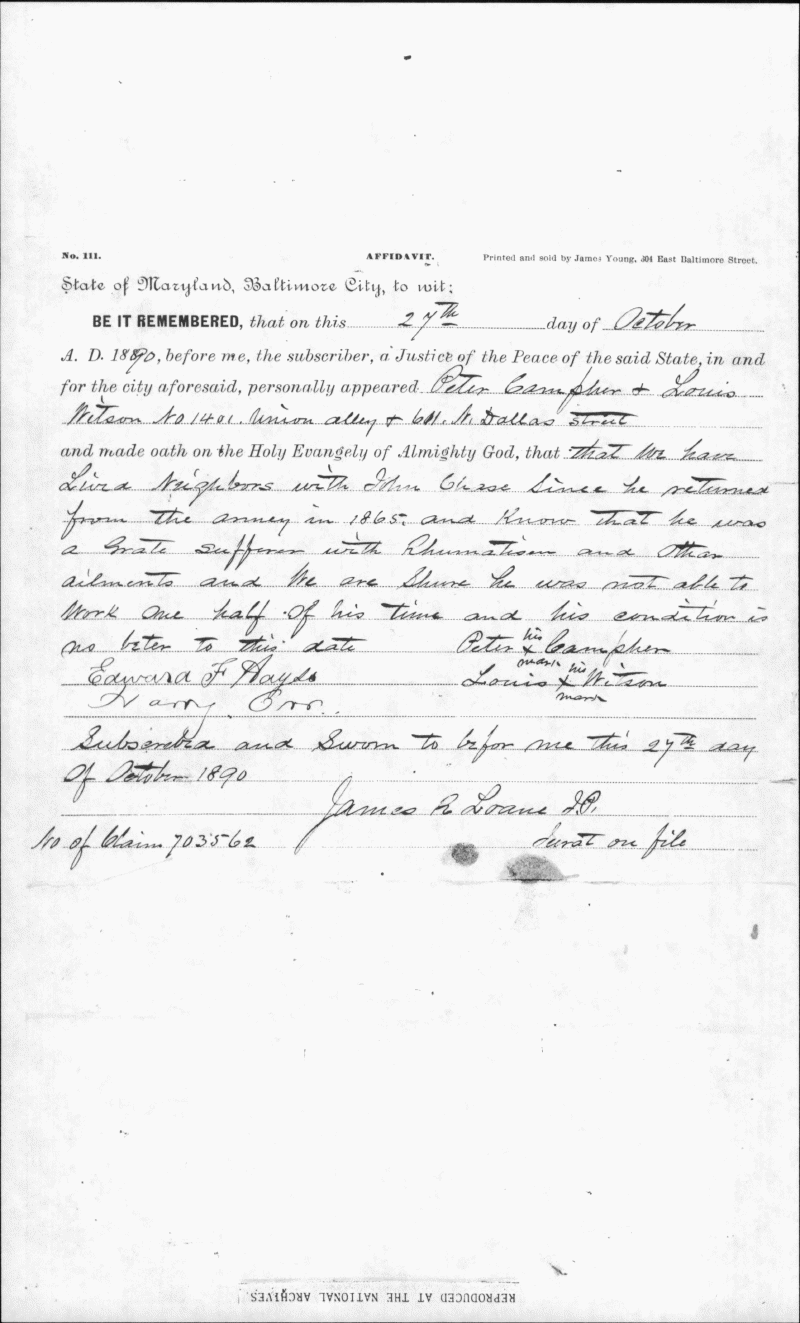 No. 111. AFFIDAVIT. Printed and sold by James Young, 304 East Baltimore Street.
State of Maryland, Baltimore City, to wit:
BE IT REMEMBERED, that on this 27th day of October
A. D. 1890, before me, the subscriber, a Justice of the Peace of the said State, in and
for the city aforesaid, personally appeared Peter Campher & Louis
Witson No 1401. Union alley & 611. N. Dallas Street
and made oath on the Holy Evangely of Almighty God, that that We have
Livd Neighbors with John Chase Since he returned
from the armey in 1865. and Know that he was
a Grate Sufferer with Rhumatism and Other
ailments and We are Shure he was not able to
Work One half Of his time and his condition is
no beter to this date Peter his x mark Campher
Edward F Hayds Louis his x mark Witson
Harry Orr.
Subscrebd and Sworn to befor me this 27th day
Of October 1890
James R Loane J.P.
No of Claim 703562 Jurat on file
REPRODUCED AT THE NATIONAL ARCHIVES